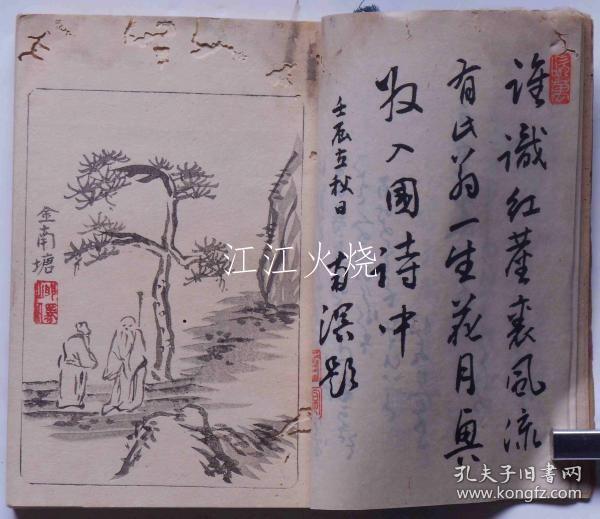 誰識紅塵裏風流
有此翁一生花月興
收入圖詩中
壬辰立秋日
南溟題
金南塘
江江火烧
孔夫子旧书网
www.kongfz.com